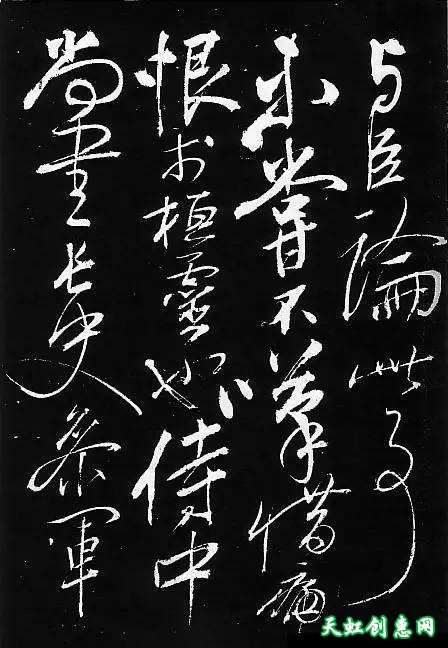 与臣論此事
未嘗不嘆惜痛
恨於桓靈也侍中
尚書長史參軍
天虹创惠网